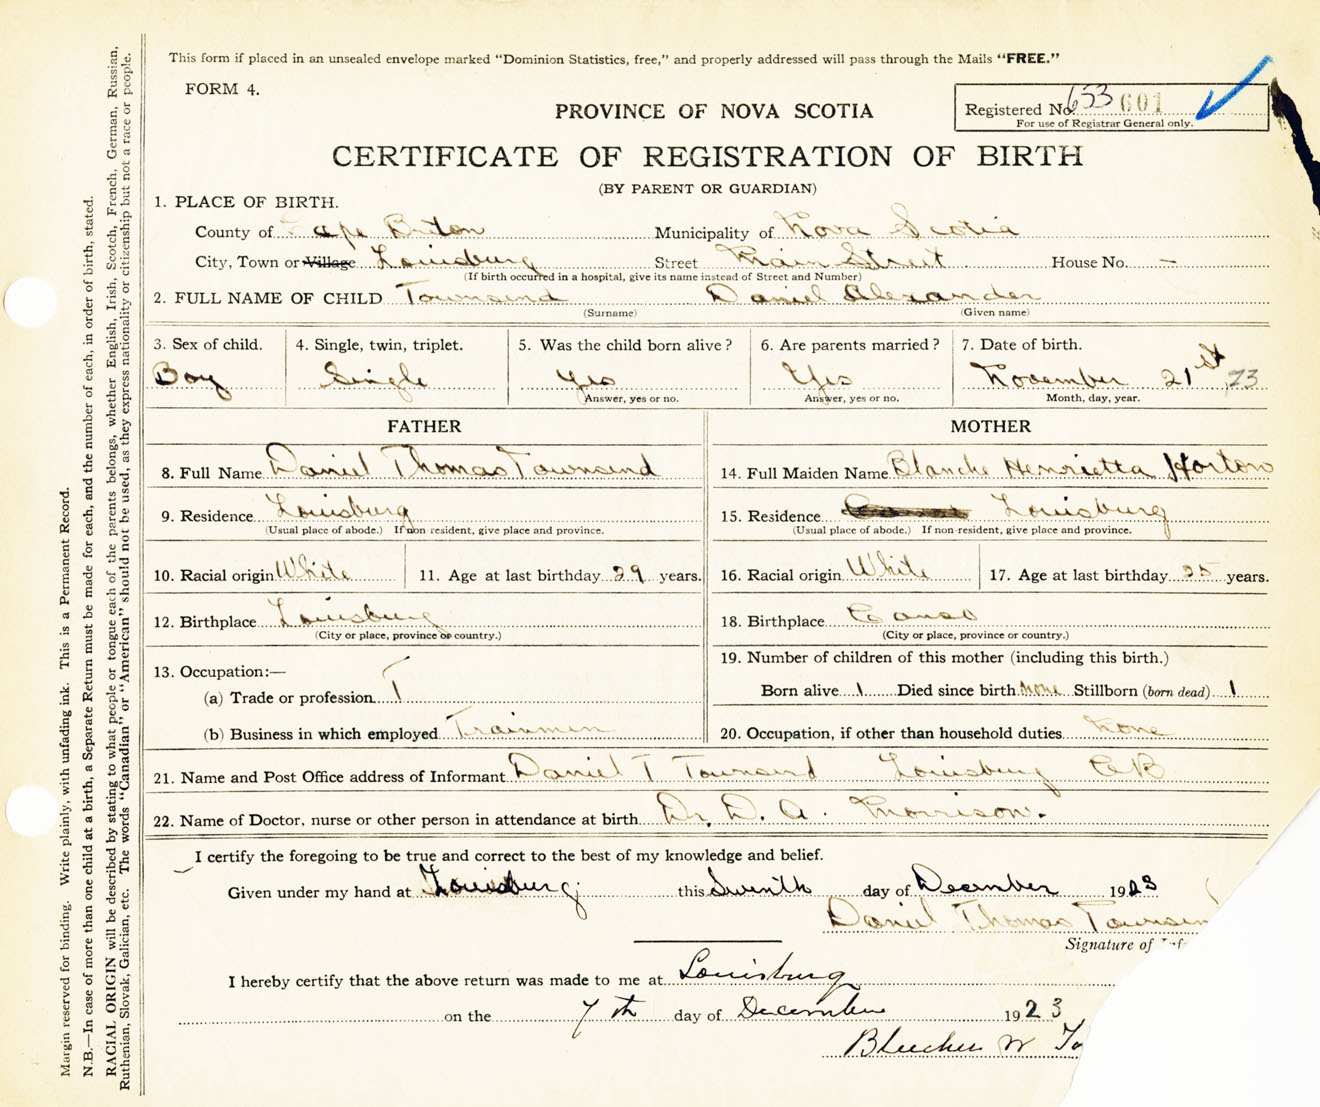 This form if placed in an unsealed envelope marked "Dominion Statistics, free," and properly addressed will pass through the Mails "FREE."
FORM 4.
Registered No. 653 601
For use of Registrar General only.
PROVINCE OF NOVA SCOTIA
CERTIFICATE OF REGISTRATION OF BIRTH
(BY PARENT OR GUARDIAN)
1. PLACE OF BIRTH.
County of Cape Briton Municipality of Nova Scotia
City, Town or Village Louisburg Street Main Street House No. –
(If birth occurred in a hospital, give its name instead of Street and Number)
2. FULL NAME OF CHILD Townsend Daniel Alexander
(Surname) (Given name)
3. Sex of child. 4. Single, twin, triplet. 5. Was the child born alive? 6. Are parents married? 7. Date of birth.
Boy Single Yes Yes November 21st, 23
Answer, yes or no. Answer, yes or no. Month, day, year.
FATHER MOTHER
8. Full Name Daniel Thomas Townsend 14. Full Maiden Name Blanche Henrietta Horton
9. Residence Louisburg 15. Residence Louisburg
(Usual place of abode.) If non-resident, give place and province. (Usual place of abode.) If non-resident, give place and province.
10. Racial origin White 11. Age at last birthday 29 years. 16. Racial origin White 17. Age at last birthday 25 years.
12. Birthplace Louisburg 18. Birthplace Canso
(City or place, province or country.) (City or place, province or country.)
13. Occupation:— 19. Number of children of this mother (including this birth.)
(a) Trade or profession T Born alive 1 Died since birth none Stillborn (born dead) 1
(b) Business in which employed Trainmen 20. Occupation, if other than household duties None
21. Name and Post Office address of Informant Daniel T Townsend Louisburg CB
22. Name of Doctor, nurse or other person in attendance at birth Dr. D. A. Morrison.
I certify the foregoing to be true and correct to the best of my knowledge and belief.
Given under my hand at Louisburg this Seventh day of December 1923
Daniel Thomas Townsen
Signature of Inf
I hereby certify that the above return was made to me at Louisburg
on the 7th day of December 1923
Bleecher W To
Margin reserved for binding. Write plainly, with unfading ink. This is a Permanent Record.
N.B.—In case of more than one child at a birth, a Separate Return must be made for each, and the number of each, in order of birth, stated.
RACIAL ORIGIN will be described by stating to what people or tongue each of the parents belongs, whether English, Irish, Scotch, French, German, Russian,
Ruthenian, Slovak, Galician, etc. The words "Canadian" or "American" should not be used, as they express nationality or citizenship but not a race or people.